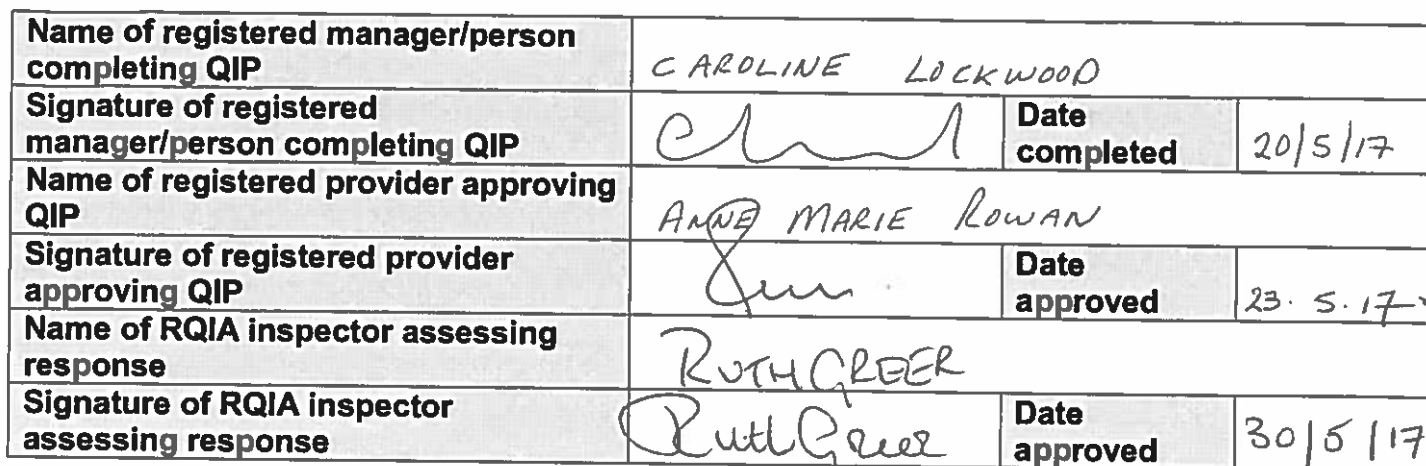 Name of registered manager/person
completing QIP
CAROLINE LOCKWOOD
Signature of registered
manager/person completing QIP
Date
completed
20/5/17
Name of registered provider approving
QIP
ANNE MARIE ROWAN
Signature of registered provider
approving QIP
Date
approved
23.5.17
Name of RQIA inspector assessing
response
RUTH GREER
Signature of RQIA inspector
assessing response
Ruth Greer
Date
approved
30/5/17